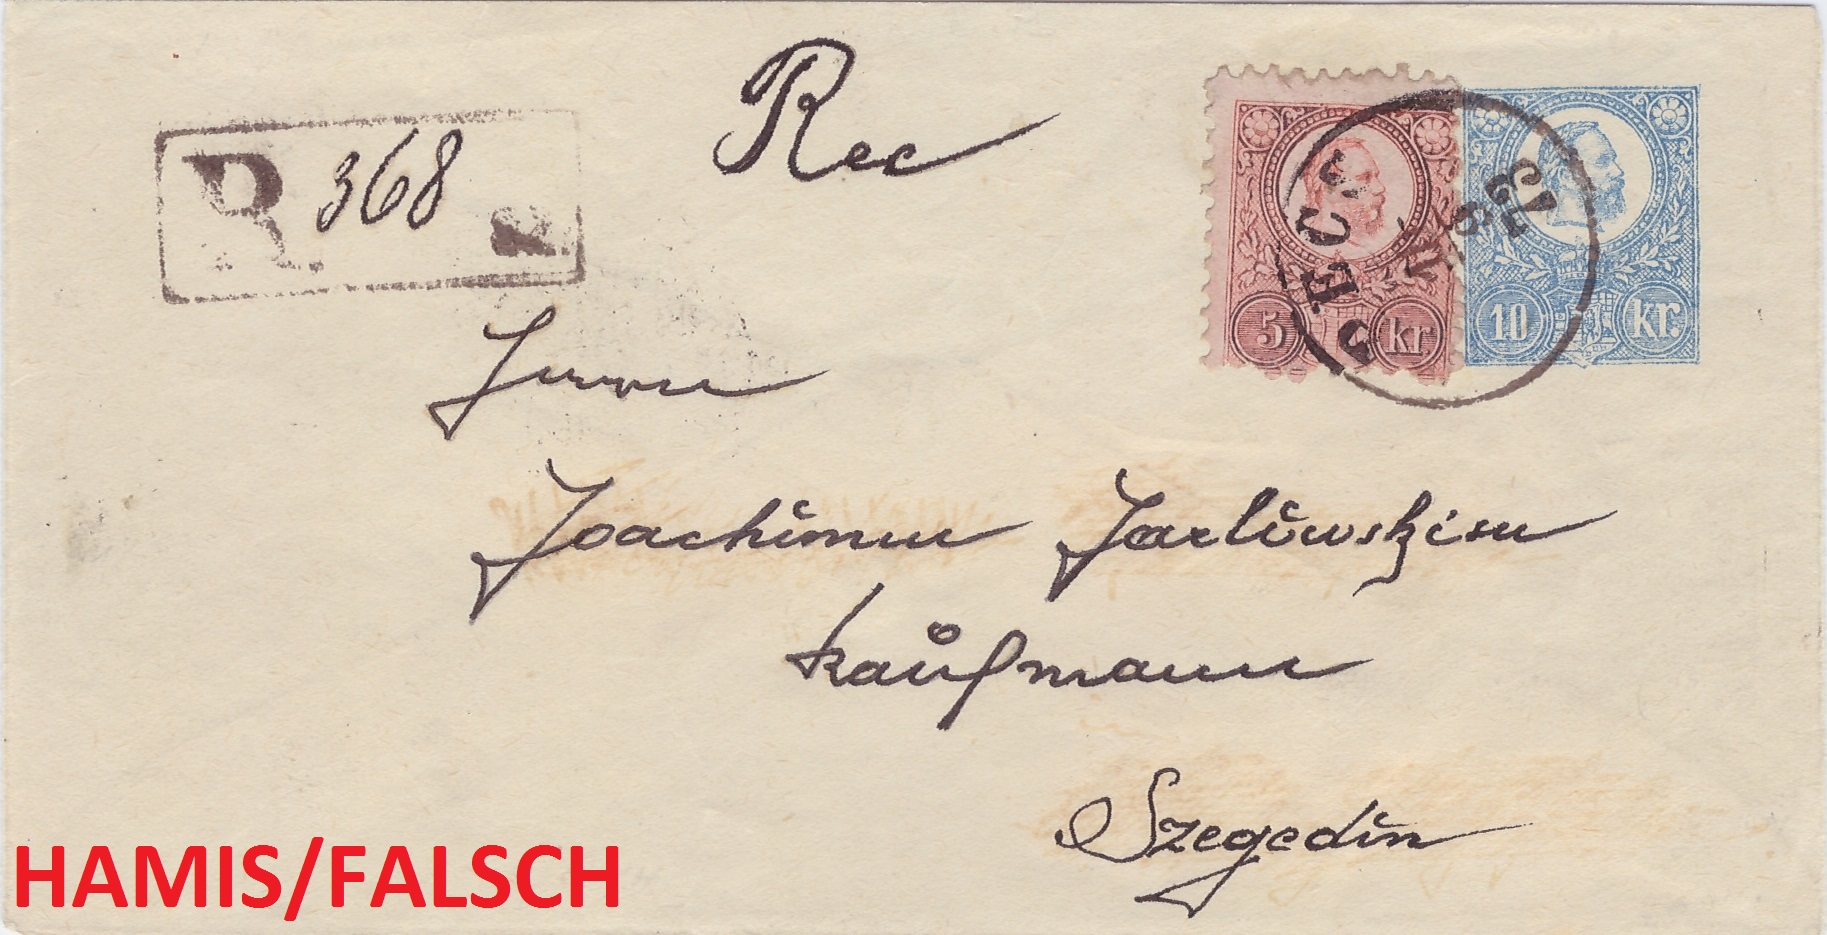 Rec
R. 368
5 kr
10 kr.
Herrn
Joachimm Jarluwskism
Kaufmann
Szegedin
HAMIS/FALSCH